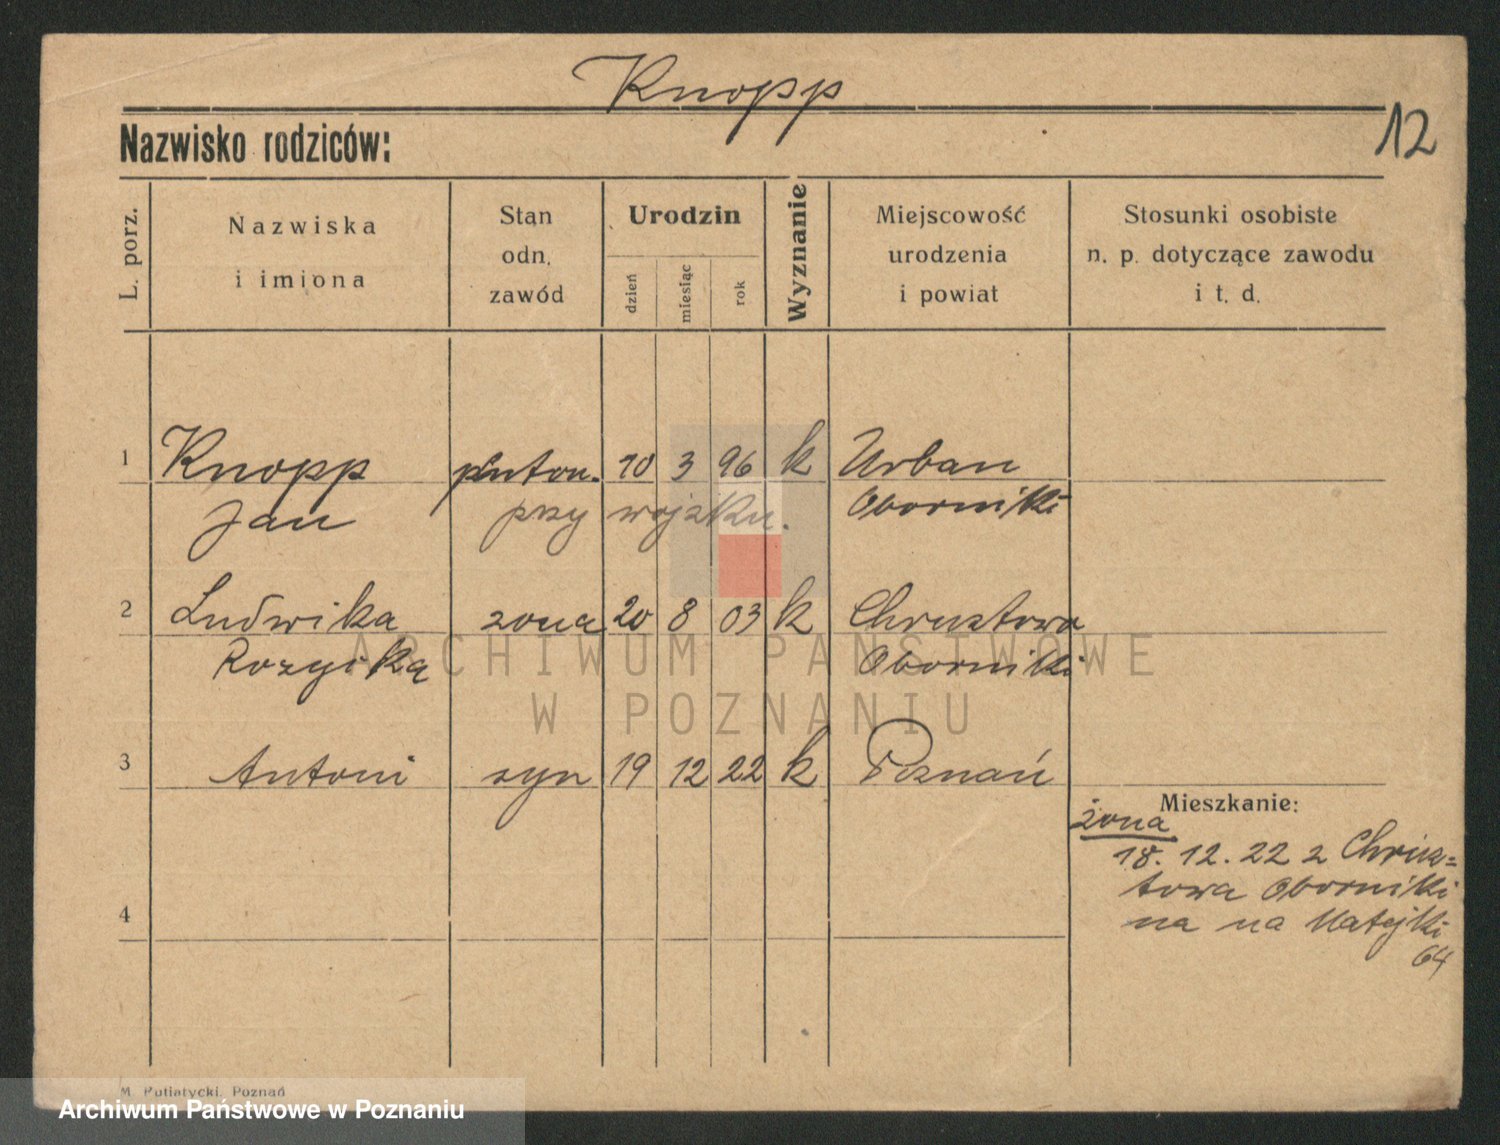 Knopp
12
Nazwisko rodziców:
L. porz.
Nazwiska
i imiona
Stan
odn.
zawód
Urodzin
dzień
miesiąc
rok
Wyznanie
Miejscowość
urodzenia
i powiat
Stosunki osobiste
n. p. dotyczące zawodu
i t. d.
1 Knopp pluton. 10 3 96 k Urban
Jan przy wojsku. Oborniki
2 Ludwika zona 20 8 03 k Chrustowa
Oborniki
3 Antoni syn 19 12 22 k Poznań
Mieszkanie:
żona
18. 12. 22 z Chrus=
towa Oborniki
na na Matejki
64
4
M. Putiatycki, Poznań
ARCHIWUM PAŃSTWOWE
W POZNANIU
Archiwum Państwowe w Poznaniu